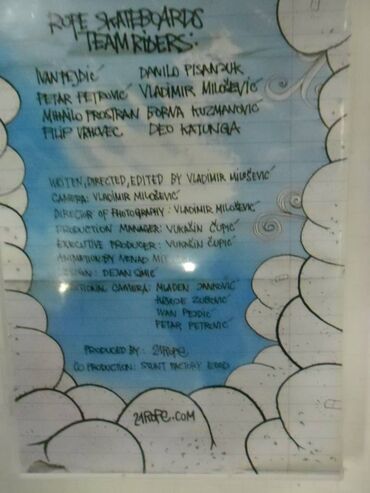 ROPE SKATEBOARDS
TEAM RIDERS:
IVAN PEJDIĆ DANILO PISANJUK
PETAR PETROVIĆ VLADIMIR MILOŠEVIĆ
MIHAILO PROSTRAN BORNA KUZMANOVIĆ
FILIP VRHOVEC DEO KATUNGA
WRITEN, DIRECTED, EDITED BY VLADIMIR MILOŠEVIĆ
CAMERA: VLADIMIR MILOŠEVIĆ
DIRECTOR OF PHOTOGRAPHY: VLADIMIR MILOŠEVIĆ
PRODUCTION MANAGER: VUKAŠIN ČUPIĆ
EXECUTIVE PRODUCER: VUKAŠIN ČUPIĆ
ANIMATION BY NENAD
DEJAN
CAMERA: MLADEN JANKOVIĆ
ZUBOVIĆ
IVAN PEJDIĆ
PETAR PETROVIĆ
PRODUCED BY: 21ROPE
CO PRODUCTION: STUNT FACTORY
21ROPE.COM